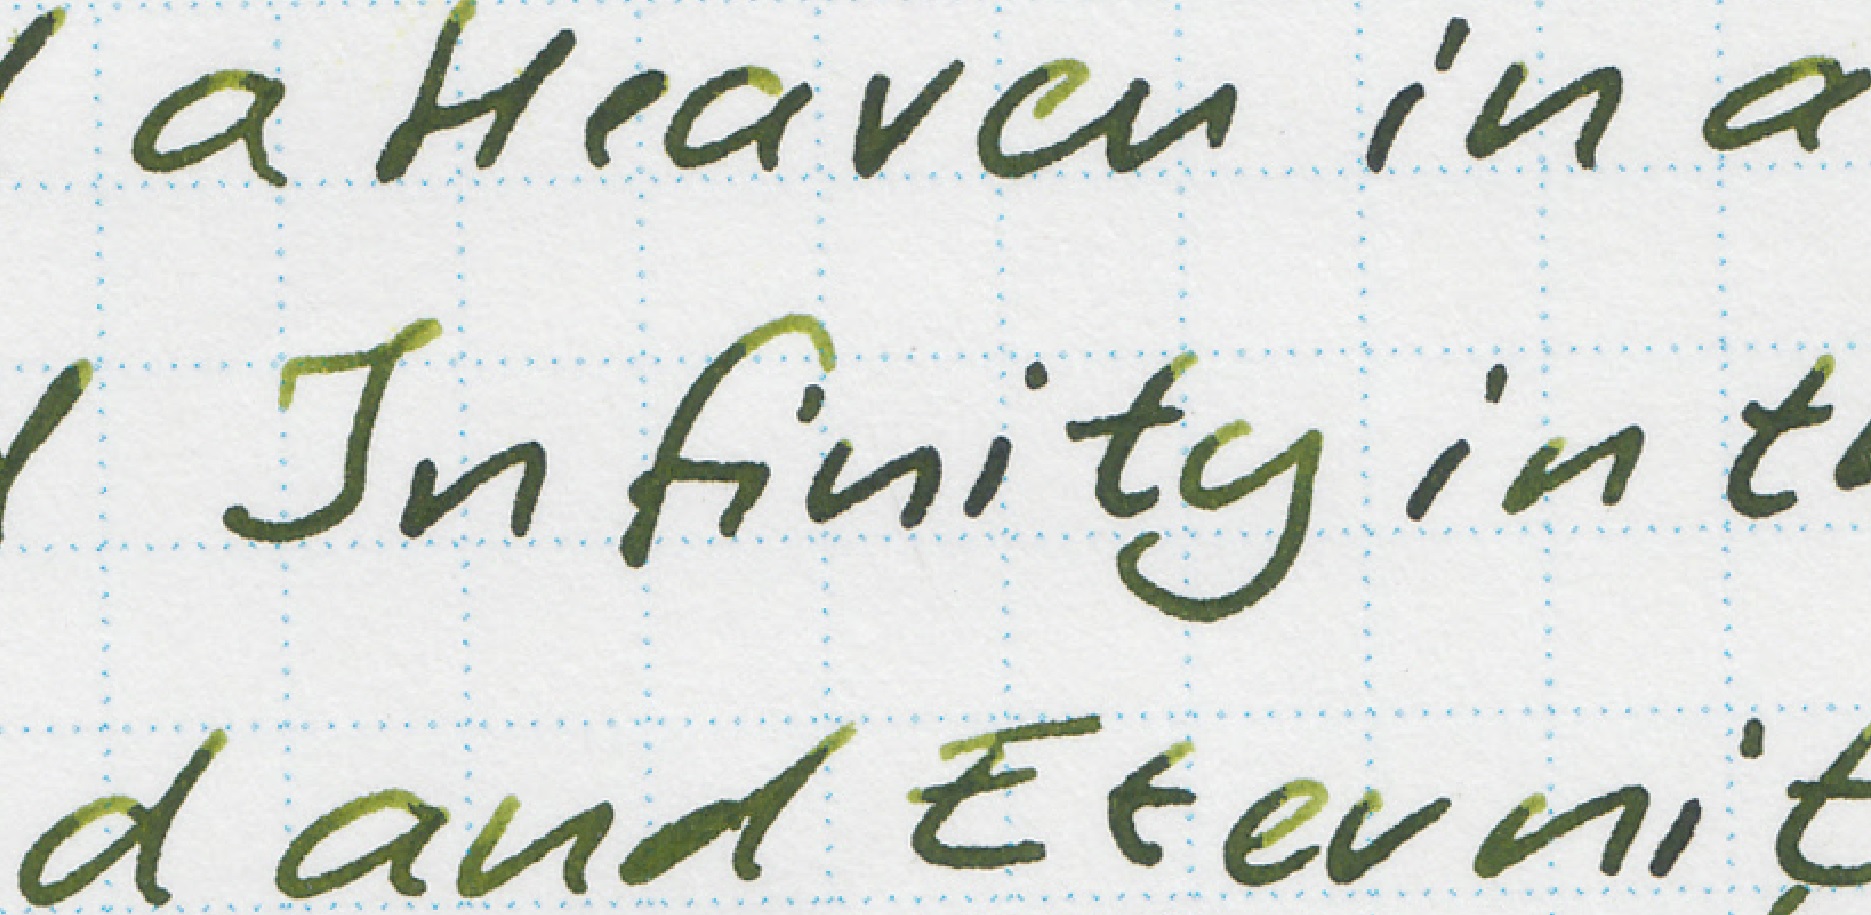 d a Heaven in a
d Infinity in th
d and Eternit